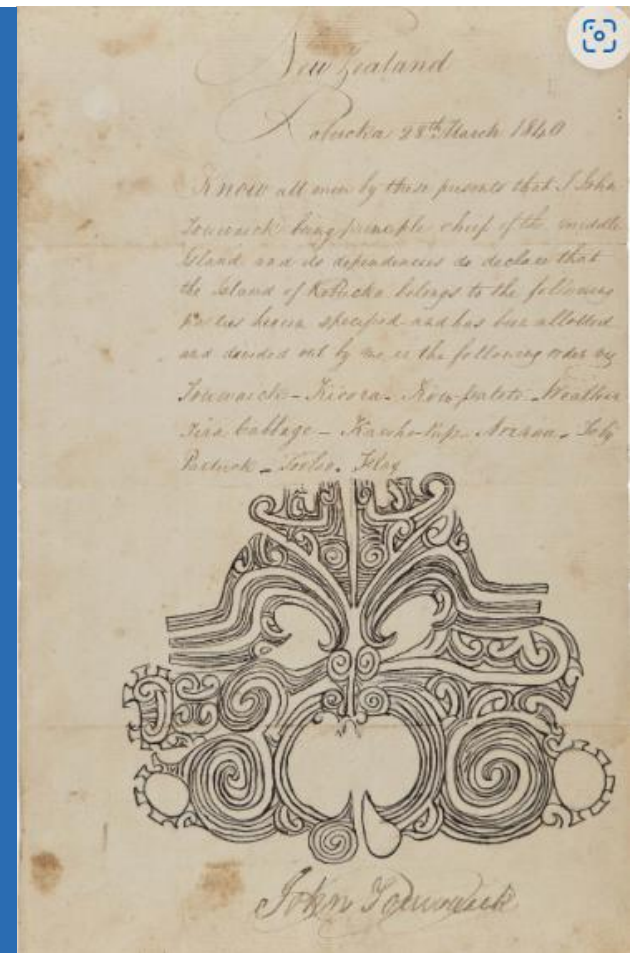 New Zealand
Robucka 28th March 1840
Know all men by these presents that I John
Touwaick being principle chief of the middle
Island and its dependencies do declare that
the Island of Robucka belongs to the following
Parties herein specified and has been allotted
and decided out by me in the following order viz
Touwaick - Kicora - Row-patoto -
Cabbage - - - Toby
Flax
John Touwaick